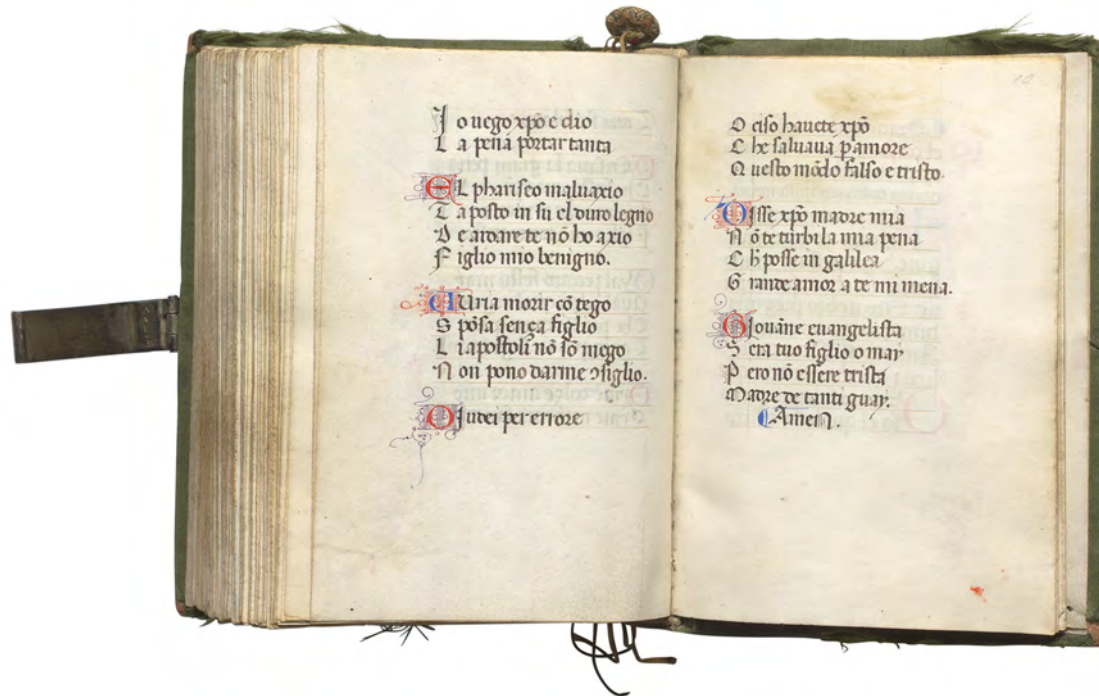 J o uego xp̄o e dio
L a pena portar tanta
EL phariseo maluaxio
T a posto in su el duro legno
D e aidare te nō ho axio
F iglio mio benigno.
UUria morir cō tego
S pōsa sença figlio
L i apostoli nō sō mego
N on pono darme ꝯsiglio.
O Judei per errore
O ciso hauete xp̄o
C he saluaua p̄ amore
Q uesto mōdo falso e tristo.
DJsse xp̄o madre mia
N ō te turbi la mia pena
C h̄ posse in galilea
G rande amor a te mi mena.
GJouāne euangelista
S era tuo figlio o may
P ero nō essere trista
Madre de tanti guay.
AmeN.